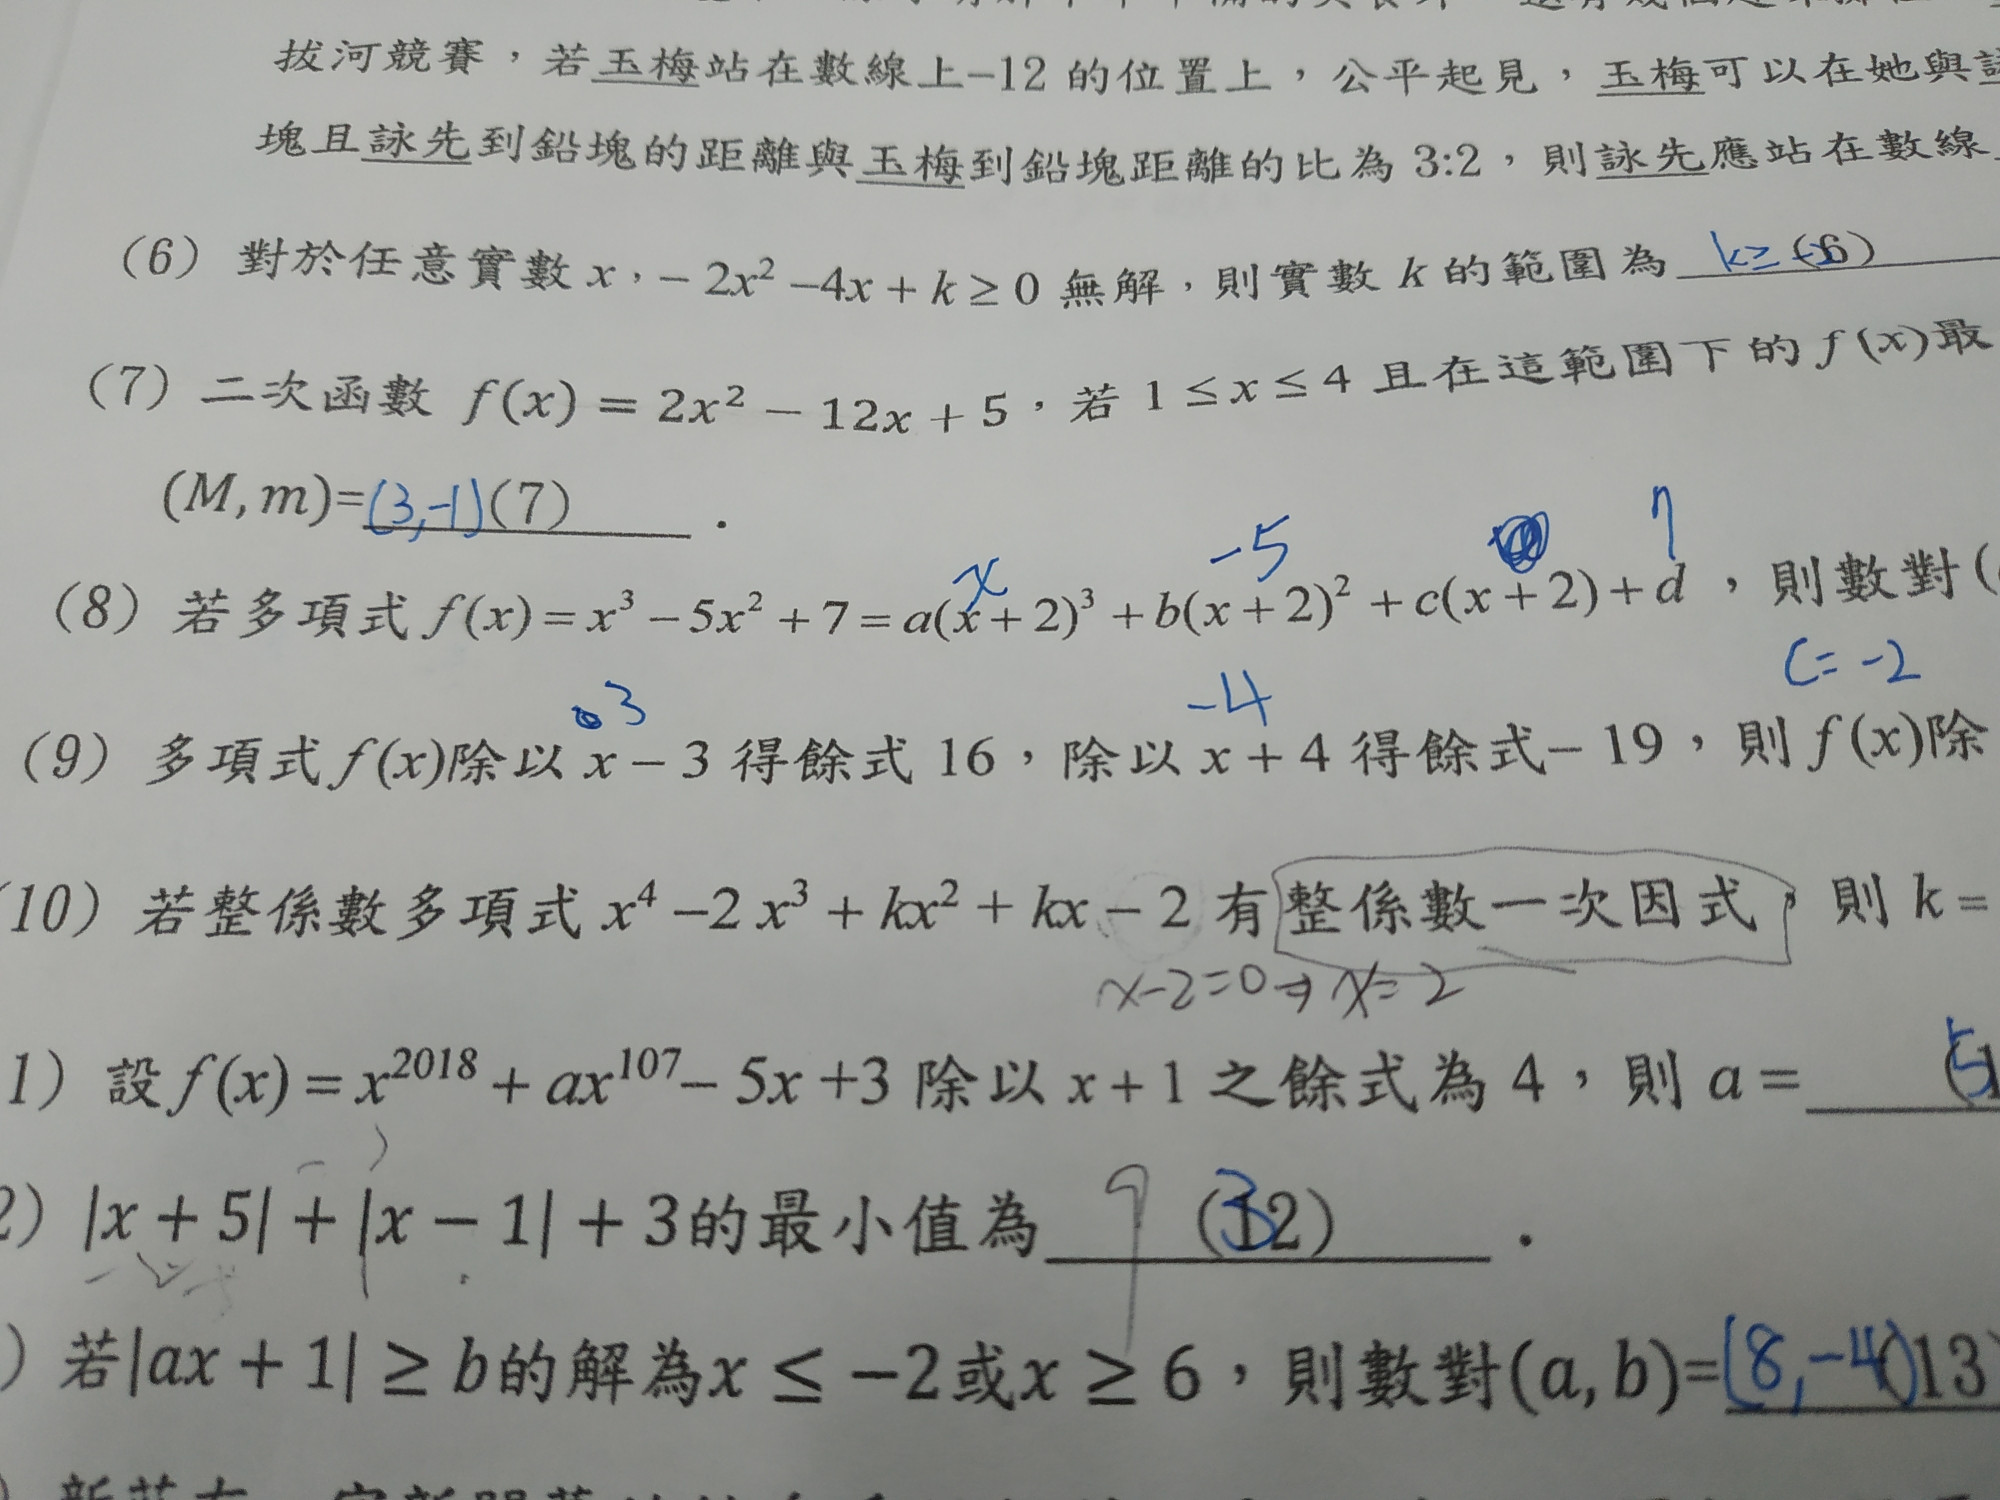 拔河競賽，若玉梅站在數線上-12 的位置上，公平起見，玉梅可以在她與
塊且詠先到鉛塊的距離與玉梅到鉛塊距離的比為 3:2，則詠先應站在數線
(6) 對於任意實數 x，- 2x² -4x + k ≥ 0 無解，則實數 k 的範圍為 k≥ (6)
(7) 二次函數 f(x) = 2x² - 12x + 5，若 1 ≤ x ≤ 4 且在這範圍下的 f(x)最
(M, m)=(3,-1)(7) .
x -5 7
(8) 若多項式 f(x) = x³ - 5x² + 7 = a(x+2)³ + b(x+2)² + c(x+2) + d，則數對(
c= -2
3 -4
(9) 多項式 f(x)除以 x - 3 得餘式 16，除以 x + 4 得餘式- 19，則 f(x)除
(10) 若整係數多項式 x⁴ -2 x³ + kx² + kx - 2 有整係數一次因式，則 k =
x-2=0⇒ x=2
1) 設 f(x) = x²⁰¹⁸ + ax¹⁰⁷- 5x +3 除以 x + 1 之餘式為 4，則 a = 5
2) |x + 5| + |x - 1| + 3的最小值為 9 (12) .
) 若|ax + 1| ≥ b的解為x ≤ -2或x ≥ 6，則數對(a, b)=(8,-4)(13)